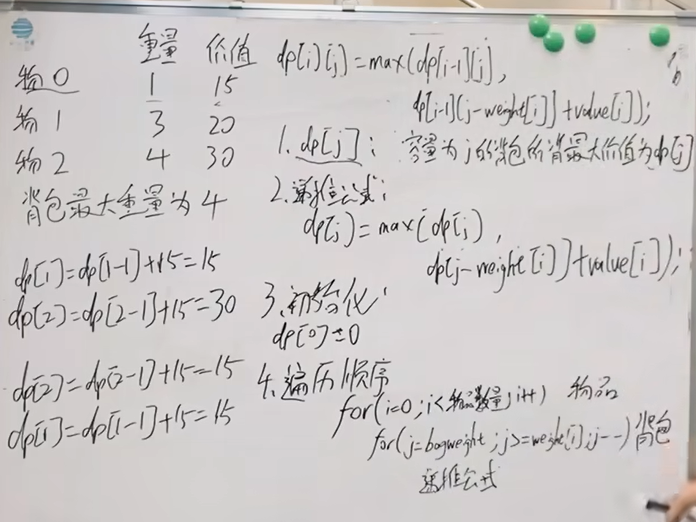 重量 价值
物0 1 15
物1 3 20
物2 4 30
背包最大重量为4
dp[1]=dp[1-1]+15=15
dp[2]=dp[2-1]+15=30
dp[2]=dp[2-1]+15=15
dp[1]=dp[1-1]+15=15
dp[i][j]=max(dp[i-1][j],
dp[i-1][j-weight[i]]+value[i]);
1. dp[j]: 容量为j的背包所背最大价值为dp[j]
2. 递推公式:
dp[j]=max(dp[j],
dp[j-weight[i]]+value[i]);
3. 初始化:
dp[0]=0
4. 遍历顺序
for(i=0; i<物品数量; i++) 物品
for(j=bagweight; j>=weight[i]; j--) 背包
递推公式